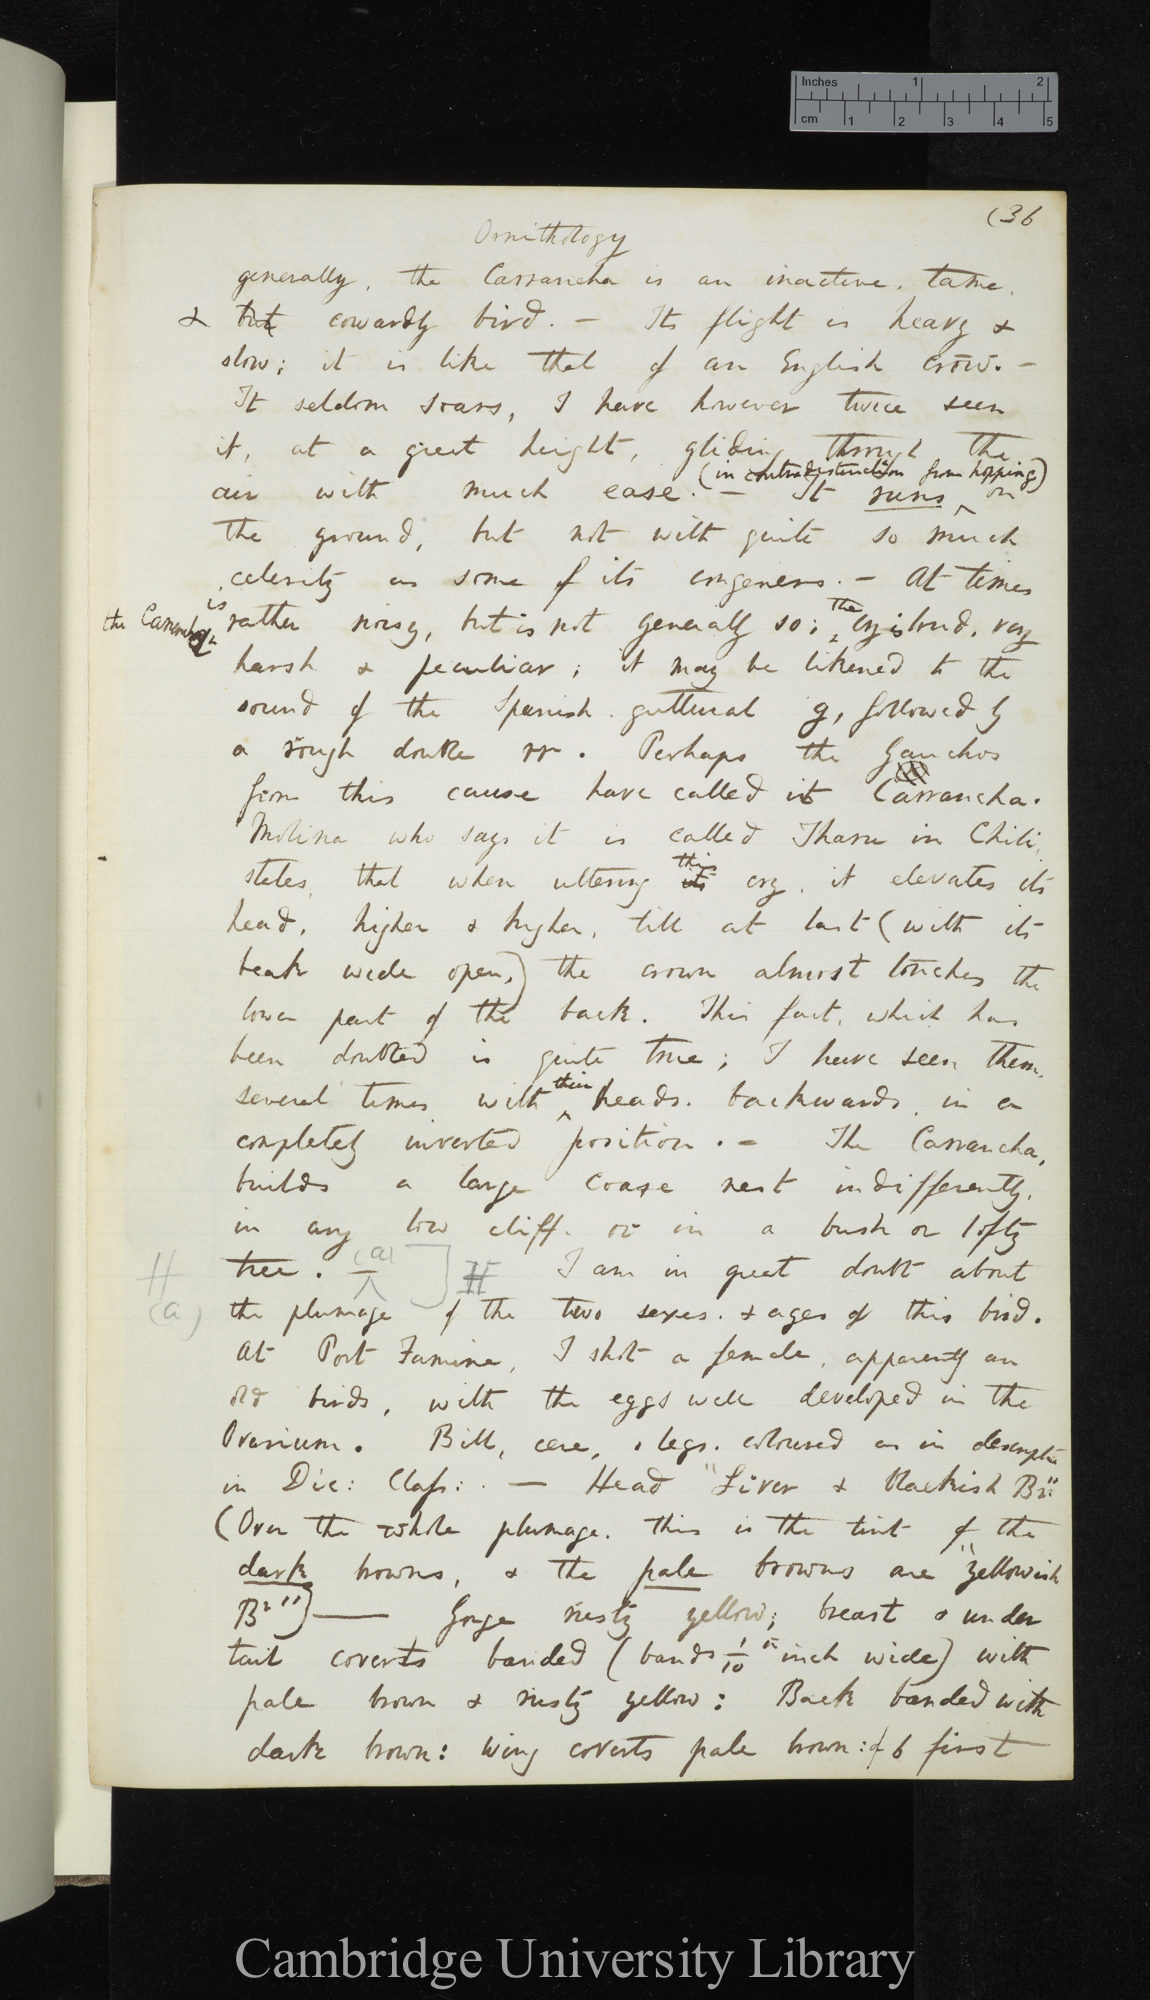 Inches 1 2
cm 1 2 3 4 5
(36
Ornithology
generally, the Carrancha is an inactive, tame,
& but cowardly bird. — Its flight is heavy &
slow; it is like that of an English crow. —
It seldom soars, I have however twice seen
it, at a great height, gliding through the
(in contradistinction from hopping)
air with much ease. — It runs ^ on
the ground, but not with quite so much
celerity as some of its congeners. — At times
the Carrancha is rather noisy, but is not generally so; ^the cry is loud, very
harsh & peculiar; it may be likened to the
sound of the Spanish guttural g, followed by
a rough double rr. Perhaps the Gauchos
from this cause have called it Carrancha.
Molina who says it is called Tharu in Chili,
states, that when uttering its this cry, it elevates its
head, higher & higher, till at last (with its
beak wide open,) the crown almost touches the
lower part of the back. This fact, which has
been doubted is quite true; I have seen them
several times with ^their heads backwards, in a
completely inverted position. — The Carrancha,
builds a large coarse nest indifferently,
in any low cliff, or in a bush or lofty
tree. (a) ] I am in great doubt about
(a) the plumage of the two sexes & ages of this bird.
At Port Famine, I shot a female, apparently an
old birds, with the eggs well developed in the
Ovarium. Bill, cere, & legs coloured as in
in Dic: Class: . — Head "Liver & blackish Br:"
(Over the whole plumage, this is the tint of the
dark browns, & the pale browns are "yellowish
Br") — Gorge rusty yellow; breast & under
tail coverts banded (bands 1/10th inch wide) with
pale brown & rusty yellow: Back banded with
dark brown: wing coverts pale brown: of 6 first
Cambridge University Library